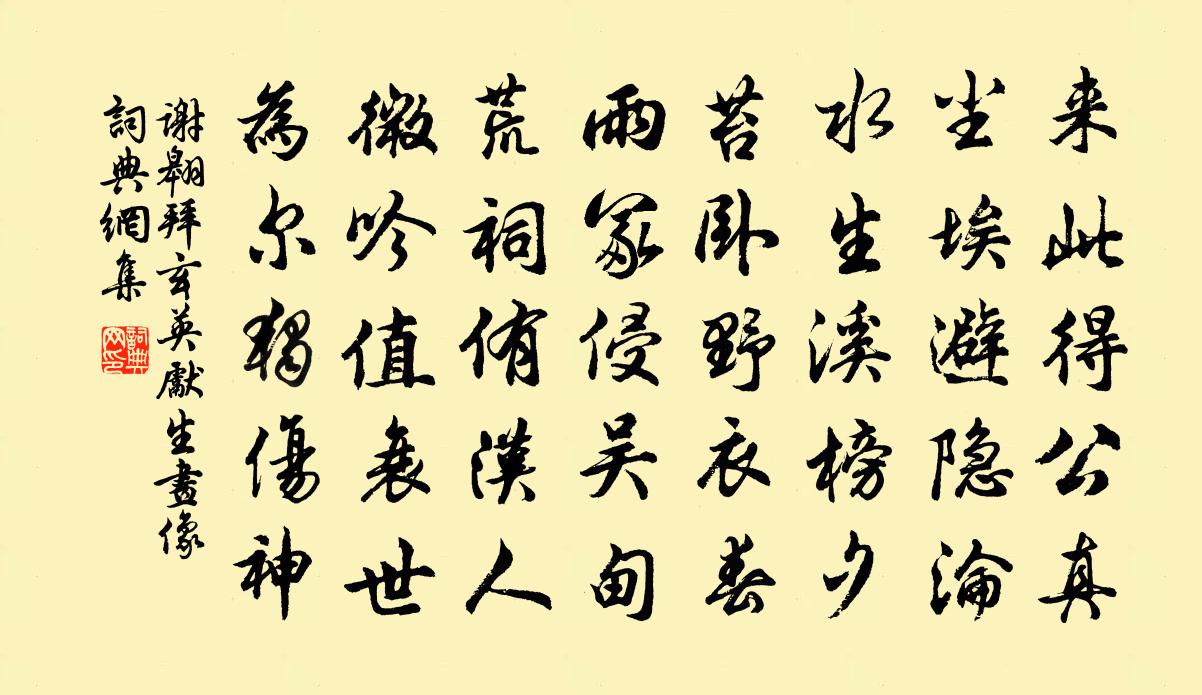 来此得公真
尘埃避隐淪
水生溪榜夕
苔卧野衣春
雨冢侵吴甸
荒祠侑漢人
微吟值衰世
為尔獨傷神
谢翱拜玄英處士畫像
詞典網集
詞典网印